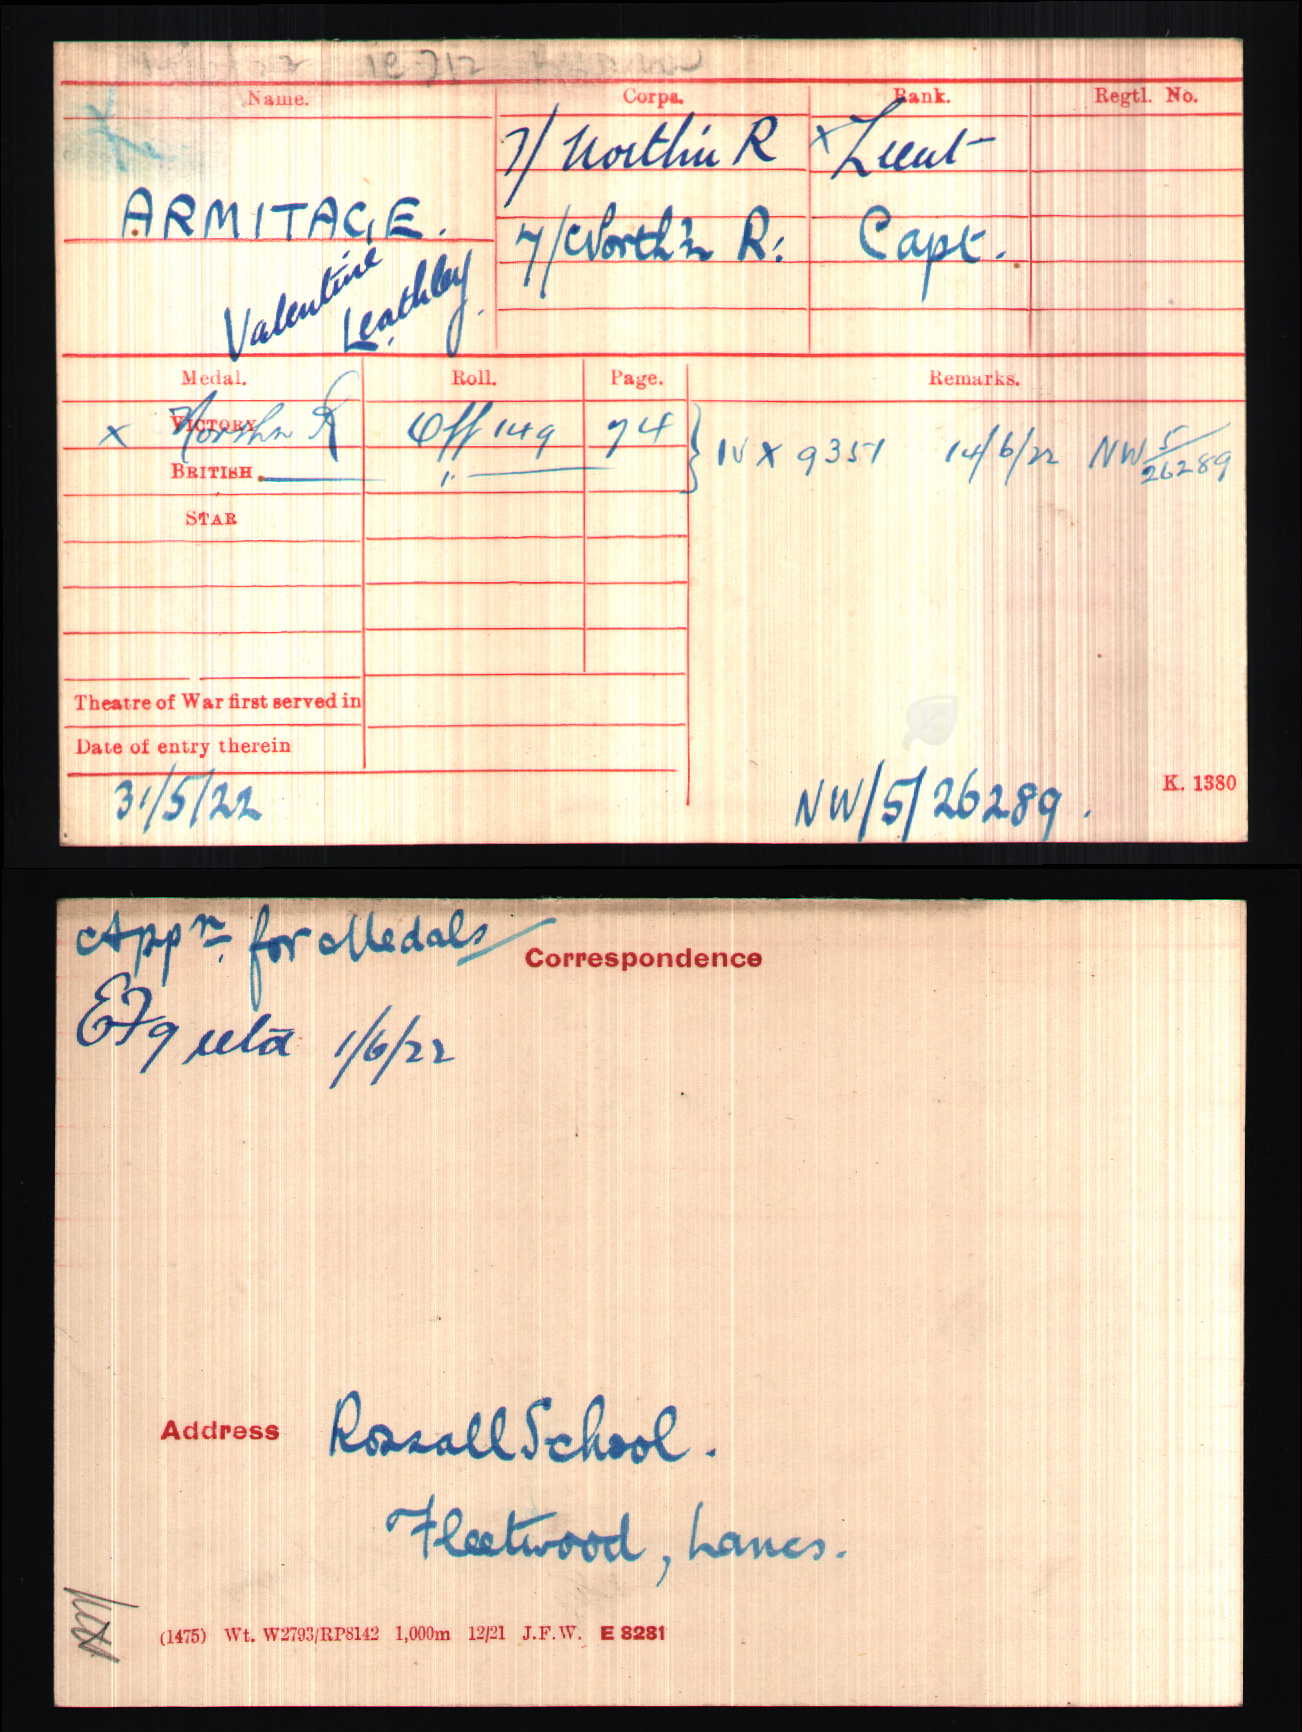 Name. Corps. Rank. Regtl. No.
7/ North'n R x Lieut
ARMITAGE. 7/North'n R: Capt.
Valentine
Leathley.
Medal. Roll. Page. Remarks.
x VICTORY North'n R Off 149 74 } IV X 9351 14/6/22 NW 5/26289
BRITISH "
STAR
Theatre of War first served in
Date of entry therein
31/5/22 NW/5/26289. K. 1380
Appn. for Medals
Correspondence
EF9 1/6/22
Address Rossall School.
Fleetwood, Lancs.
(1475) Wt. W2793/RP8142 1,000m 12/21 J.F.W. E 8281